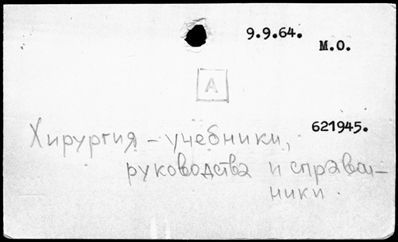 9.9.64.
М.О.
А
621945.
Хирургия – учебники,
руководства и справоч-
ники.